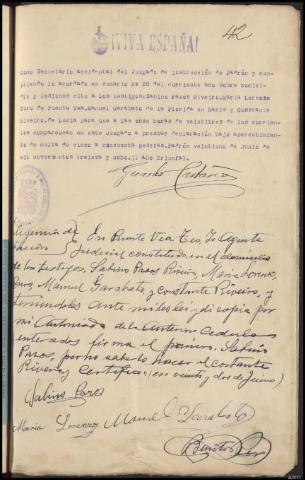 42
¡VIVA ESPAÑA!
Como Secretario accidental del Juzgado de instrucción de Padrón y cum-
pliendo lo acordado en sumario 28 del corriente año sobre homici-
dio y lesiones cito a los testigos, Sabino Pazos Riveiro, María Lorenzo
Toro de Puente Vea, Manuel Garabato de la Florida en Baria y Constante
Riveiro, de Lucia para que a las once horas de veintitres de los corrien-
tes comparezcan en este Juzgado a prestar declaración bajo apercibimien-
to de multa de cinco a cincuenta pesetas. Padrón veintiuno de Junio de
mil novecientos treinta y ocho. II Año Triunfal.
Diligencia de En Puente Vea Teo Yo Agente
ción Judicial constituido en el domicilio
de los testigos, Sabino Pazos Riveiro, María Lorenzo
Manuel Garabato y Constante Riveiro, y
teniendoles ante mi les lei y di copia por
mi Autorizada de la anterior Cedula
enterados firma el primero, Sabino
Pazos, por no saberlo hacer el Costante
Riveiro y Certifico (en veinte y dos de Junio)
Sabino Pazos
Maria Lorenzo Manuel Garabato
Benito